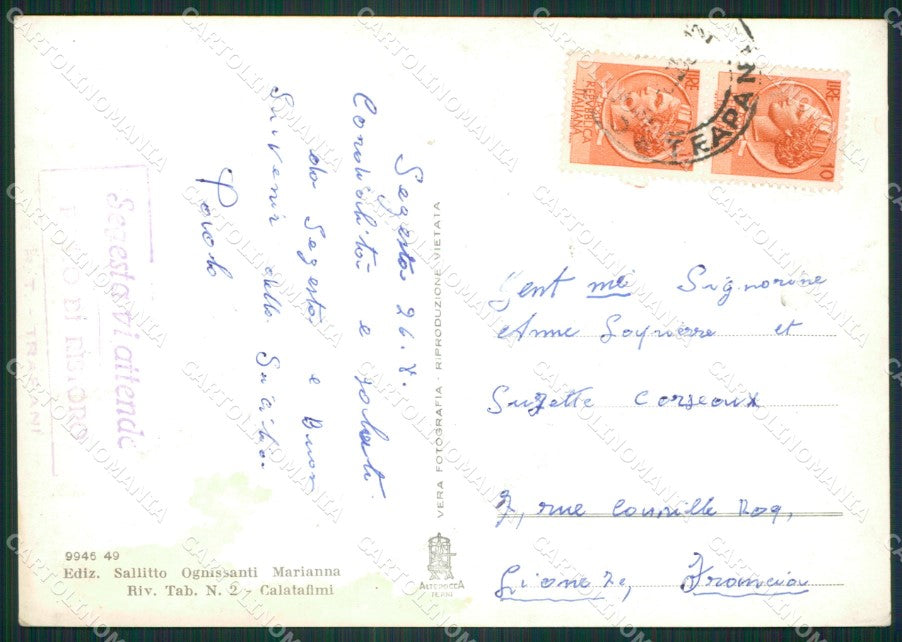 Segesta 26.8.
Cordialità e saluti
da Segesta e Buon
Suvenir della Sicilia
Paolo
Segesta vi attende
TRAPANI
VERA FOTOGRAFIA - RIPRODUZIONE VIETATA
LIRE
REPVBBLICA
ITALIANA
LIRE
10
TRAPANI
Gent me Signorine
Anne et
Suzette Corseaux
7, rue Roq,
Lione 7e, Francia
9946 49
Ediz. Sallitto Ognissanti Marianna
Riv. Tab. N. 2 - Calatafimi
ALTEROCCA
TERNI
CARTOLINOMANIA